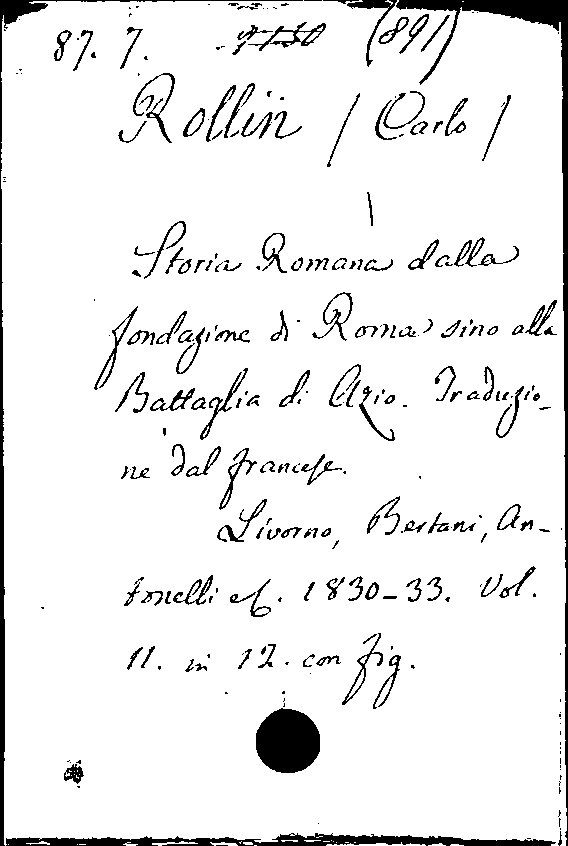 87. 7. (891)
Rollin / Carlo /
Storia Romana dalla
fondazione di Roma sino alla
Battaglia di Azio. Traduzio-
ne dal francese.
Livorno, Bertani, An-
tonelli e C. 1830-33. Vol.
11. in 12. con fig.